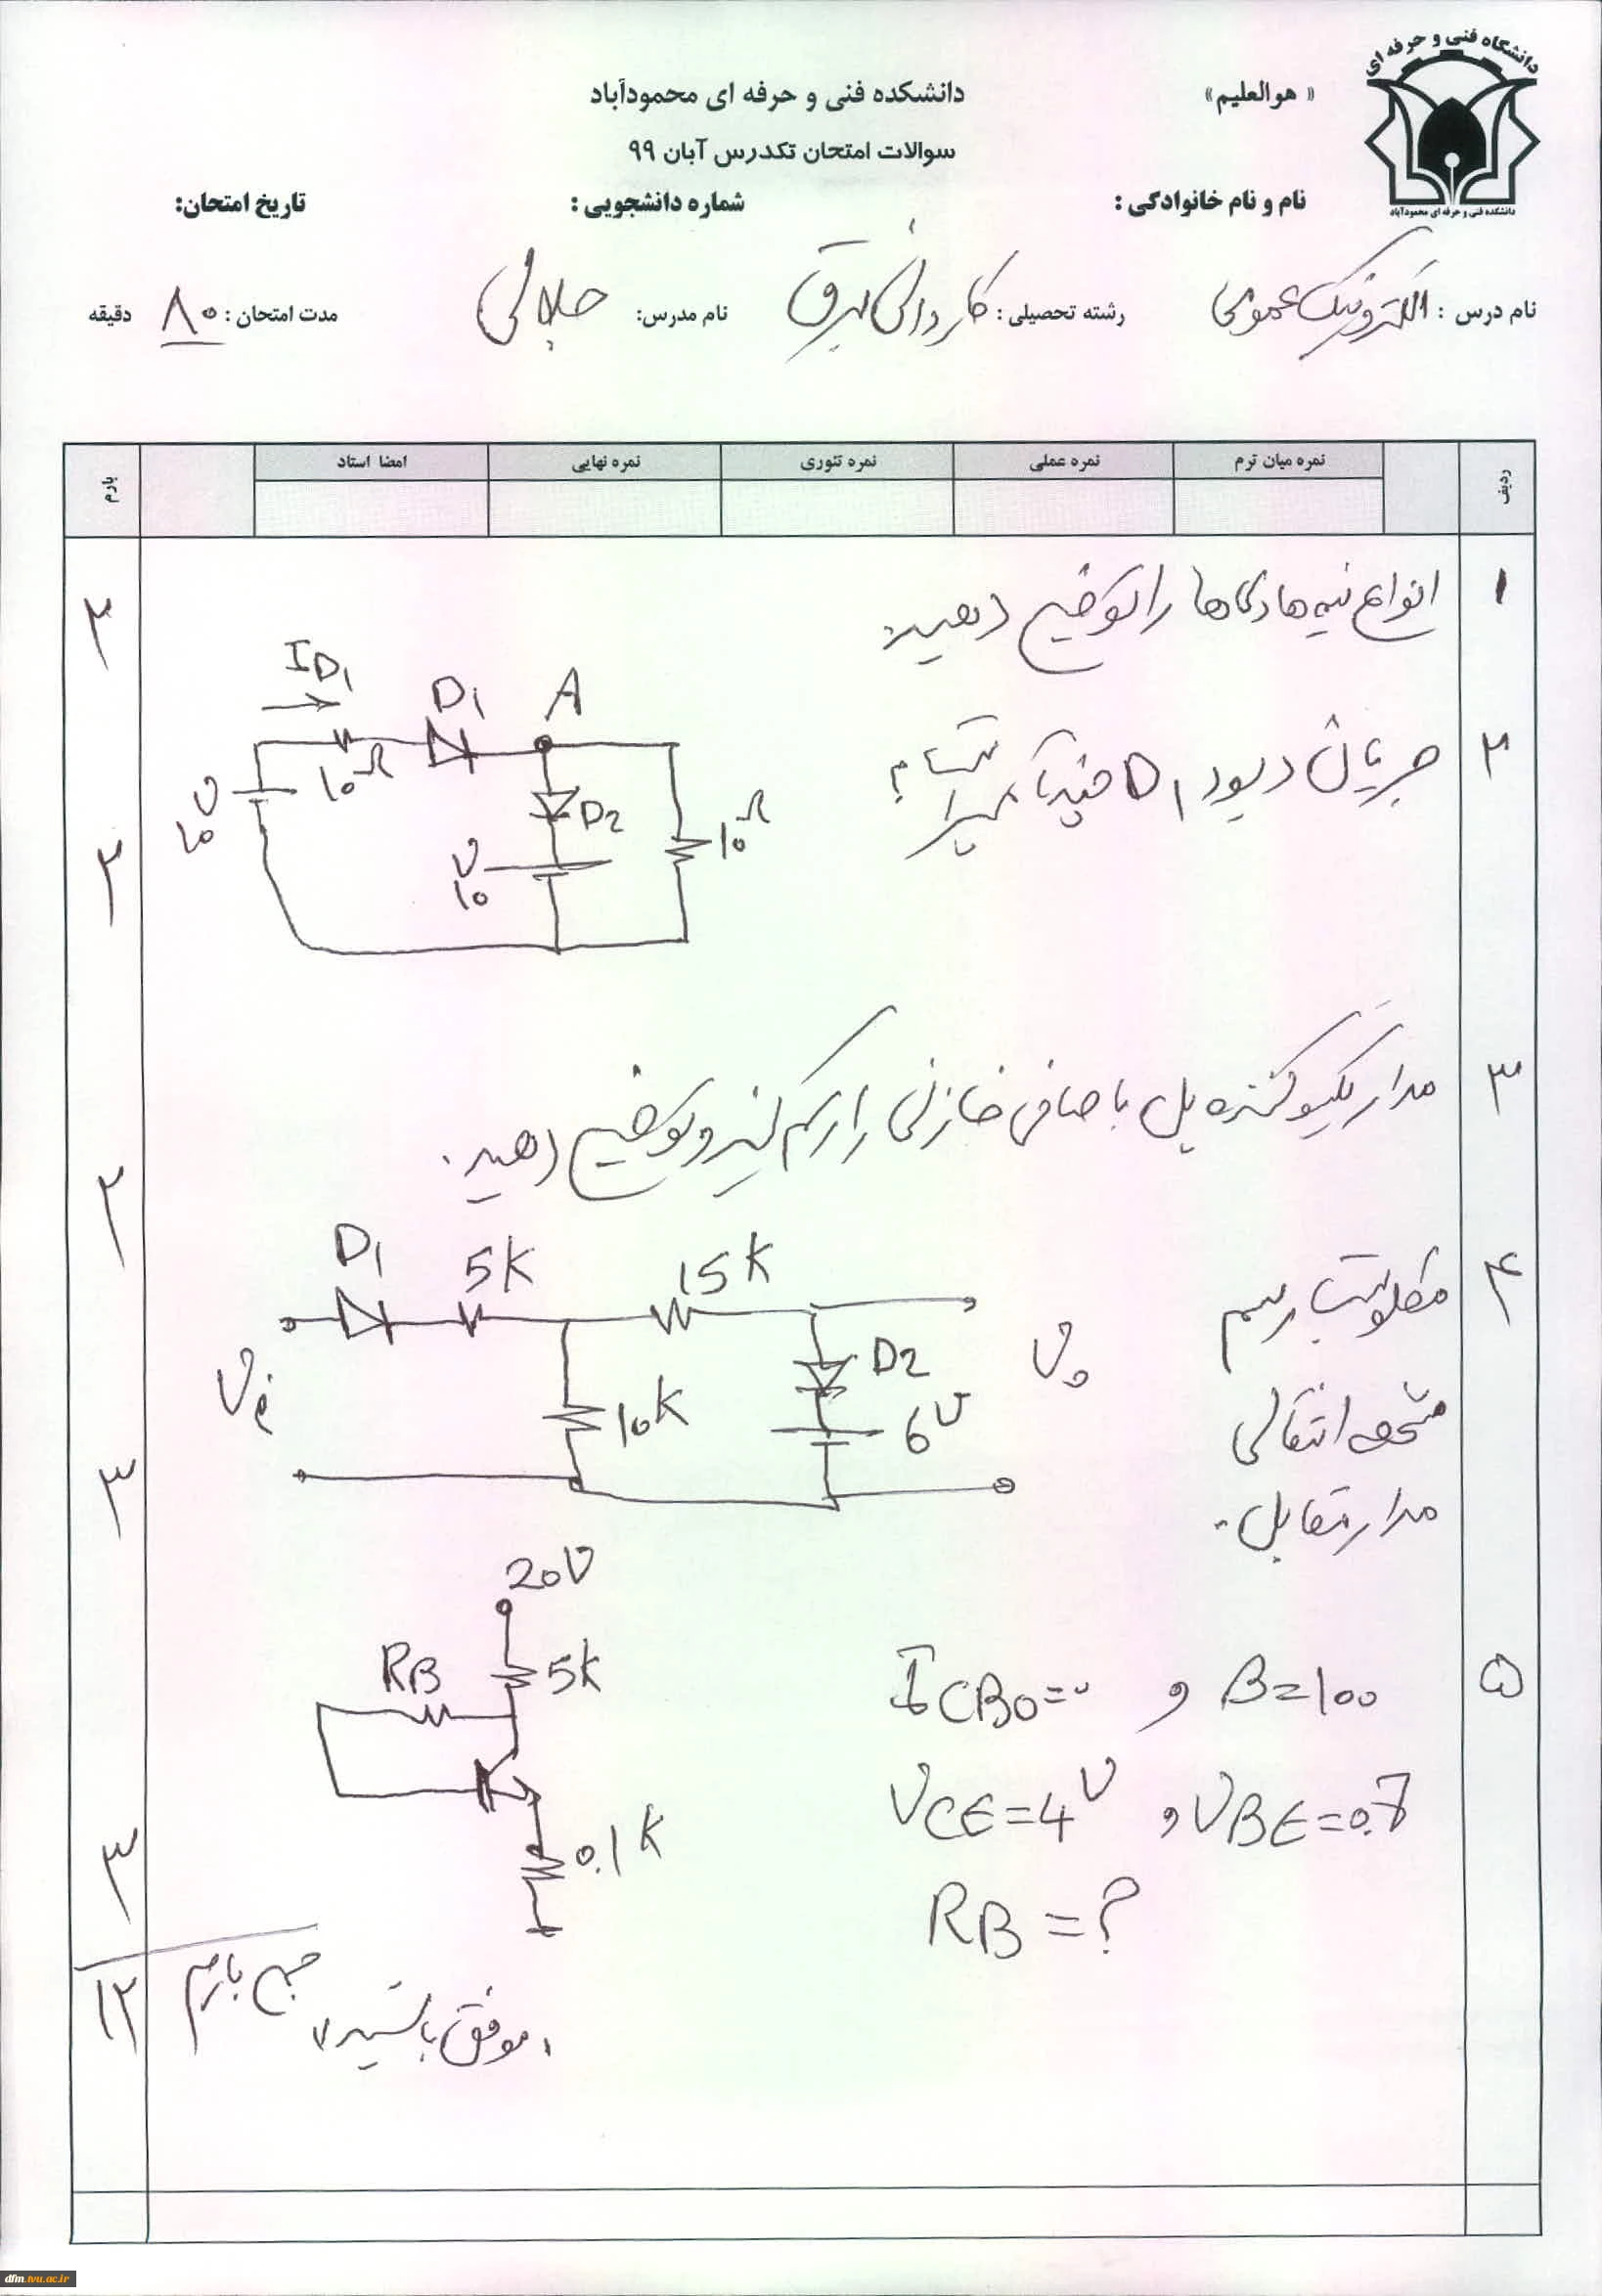 دانشگاه فنی و حرفه ای
دانشکده فنی و حرفه ای محمودآباد
« هوالعلیم»
دانشکده فنی و حرفه ای محمودآباد
سوالات امتحان تکدرس آبان ۹۹
نام و نام خانوادگی :
شماره دانشجویی :
تاریخ امتحان:
نام درس : الکترونیک عمومی
رشته تحصیلی : کاردانی برق
نام مدرس: جلالی
مدت امتحان : ۸۰ دقیقه
ردیف
نمره میان ترم
نمره عملی
نمره تئوری
نمره نهایی
امضا استاد
بارم
۱
انواع نیمه هادی ها را توضیح دهید.
۲
ID1
D1
A
10Ω
10V
D2
10V
10Ω
۲
جریان دیود D1 چند آمپر است؟
۲
۳
مدار یکسو کننده پل با صافی خازنی را رسم کنید و توضیح دهید.
۲
۴
مطلوبست رسم
مشخصه انتقالی
مدار مقابل.
D1
5K
15K
Vi
10K
D2
6V
Vo
۳
۵
20V
RB
5K
0.1K
B=100 و ICBO=0
VBE=0.7 و VCE=4V
RB=?
۳
۱۲
جمع بارم
موفق باشید
dfm.tvu.ac.ir